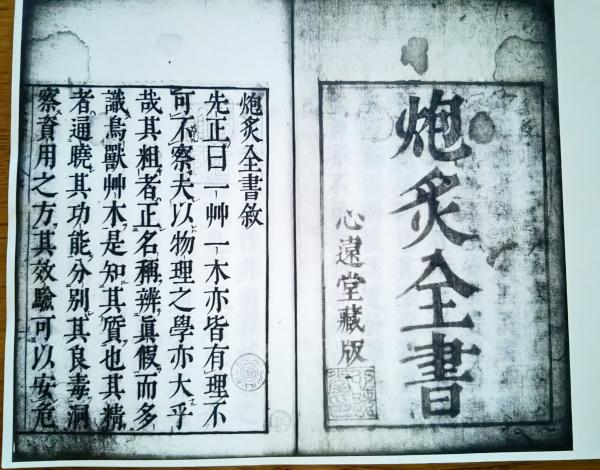 炮炙全書
心遠堂藏版
炮炙全書敘
先正曰一艸一木亦皆有理不
可不察夫以物理之學亦大乎
哉其粗者正名稱辨真假而多
識鳥獸艸木是知其質也其精
者通曉其功能分別其良毒洞
察資用之方其效驗可以安危